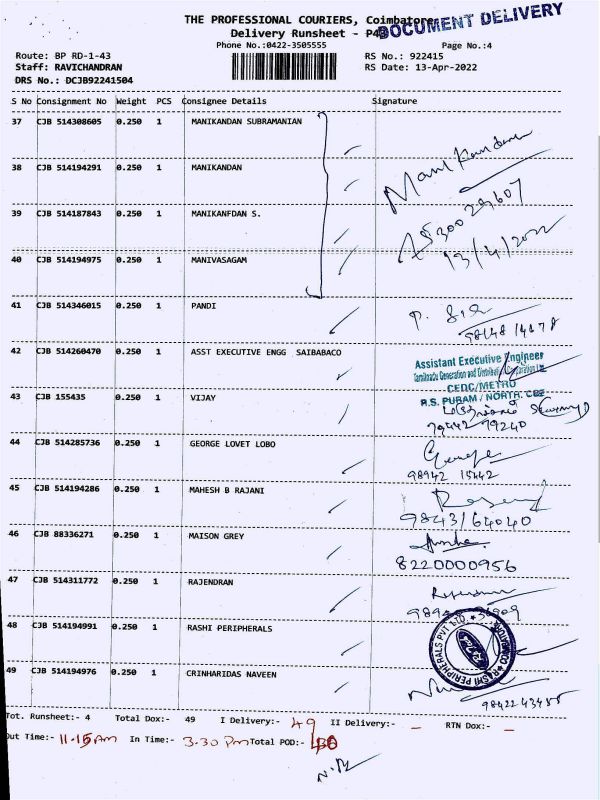 THE PROFESSIONAL COURIERS, Coimbatore
DOCUMENT DELIVERY
Delivery Runsheet - P43
Phone No.:0422-3505555 Page No.:4
Route: BP RD-1-43 RS No.: 922415
Staff: RAVICHANDRAN RS Date: 13-Apr-2022
DRS No.: DCJB92241504
S No Consignment No Weight PCS Consignee Details Signature
37 CJB 514308605 0.250 1 MANIKANDAN SUBRAMANIAN
38 CJB 514194291 0.250 1 MANIKANDAN Manikandan
39 CJB 514187843 0.250 1 MANIKANFDAN S.
40 CJB 514194975 0.250 1 MANIVASAGAM 13/4/2022
41 CJB 514346015 0.250 1 PANDI
42 CJB 514260470 0.250 1 ASST EXECUTIVE ENGG SAIBABACO
Assistant Executive Engineer
Tamilnadu Generation and Distribution Corporation Ltd
CEDC/METRO
R.S. PURAM / NORTH. CBE
43 CJB 155435 0.250 1 VIJAY
79442 79240
44 CJB 514285736 0.250 1 GEORGE LOVET LOBO George
98942 15442
45 CJB 514194286 0.250 1 MAHESH B RAJANI
9843164040
46 CJB 88336271 0.250 1 MAISON GREY
8220000956
47 CJB 514311772 0.250 1 RAJENDRAN
48 CJB 514194991 0.250 1 RASHI PERIPHERALS
RASHI PERIPHERALS PVT LTD. COIMBATORE
49 CJB 514194976 0.250 1 CRINHARIDAS NAVEEN
Tot. Runsheet:- 4 Total Dox:- 49 I Delivery:- 49 II Delivery:- - RTN Dox:- -
Out Time:- 11.15 Am In Time:- 3.30 Pm Total POD:-